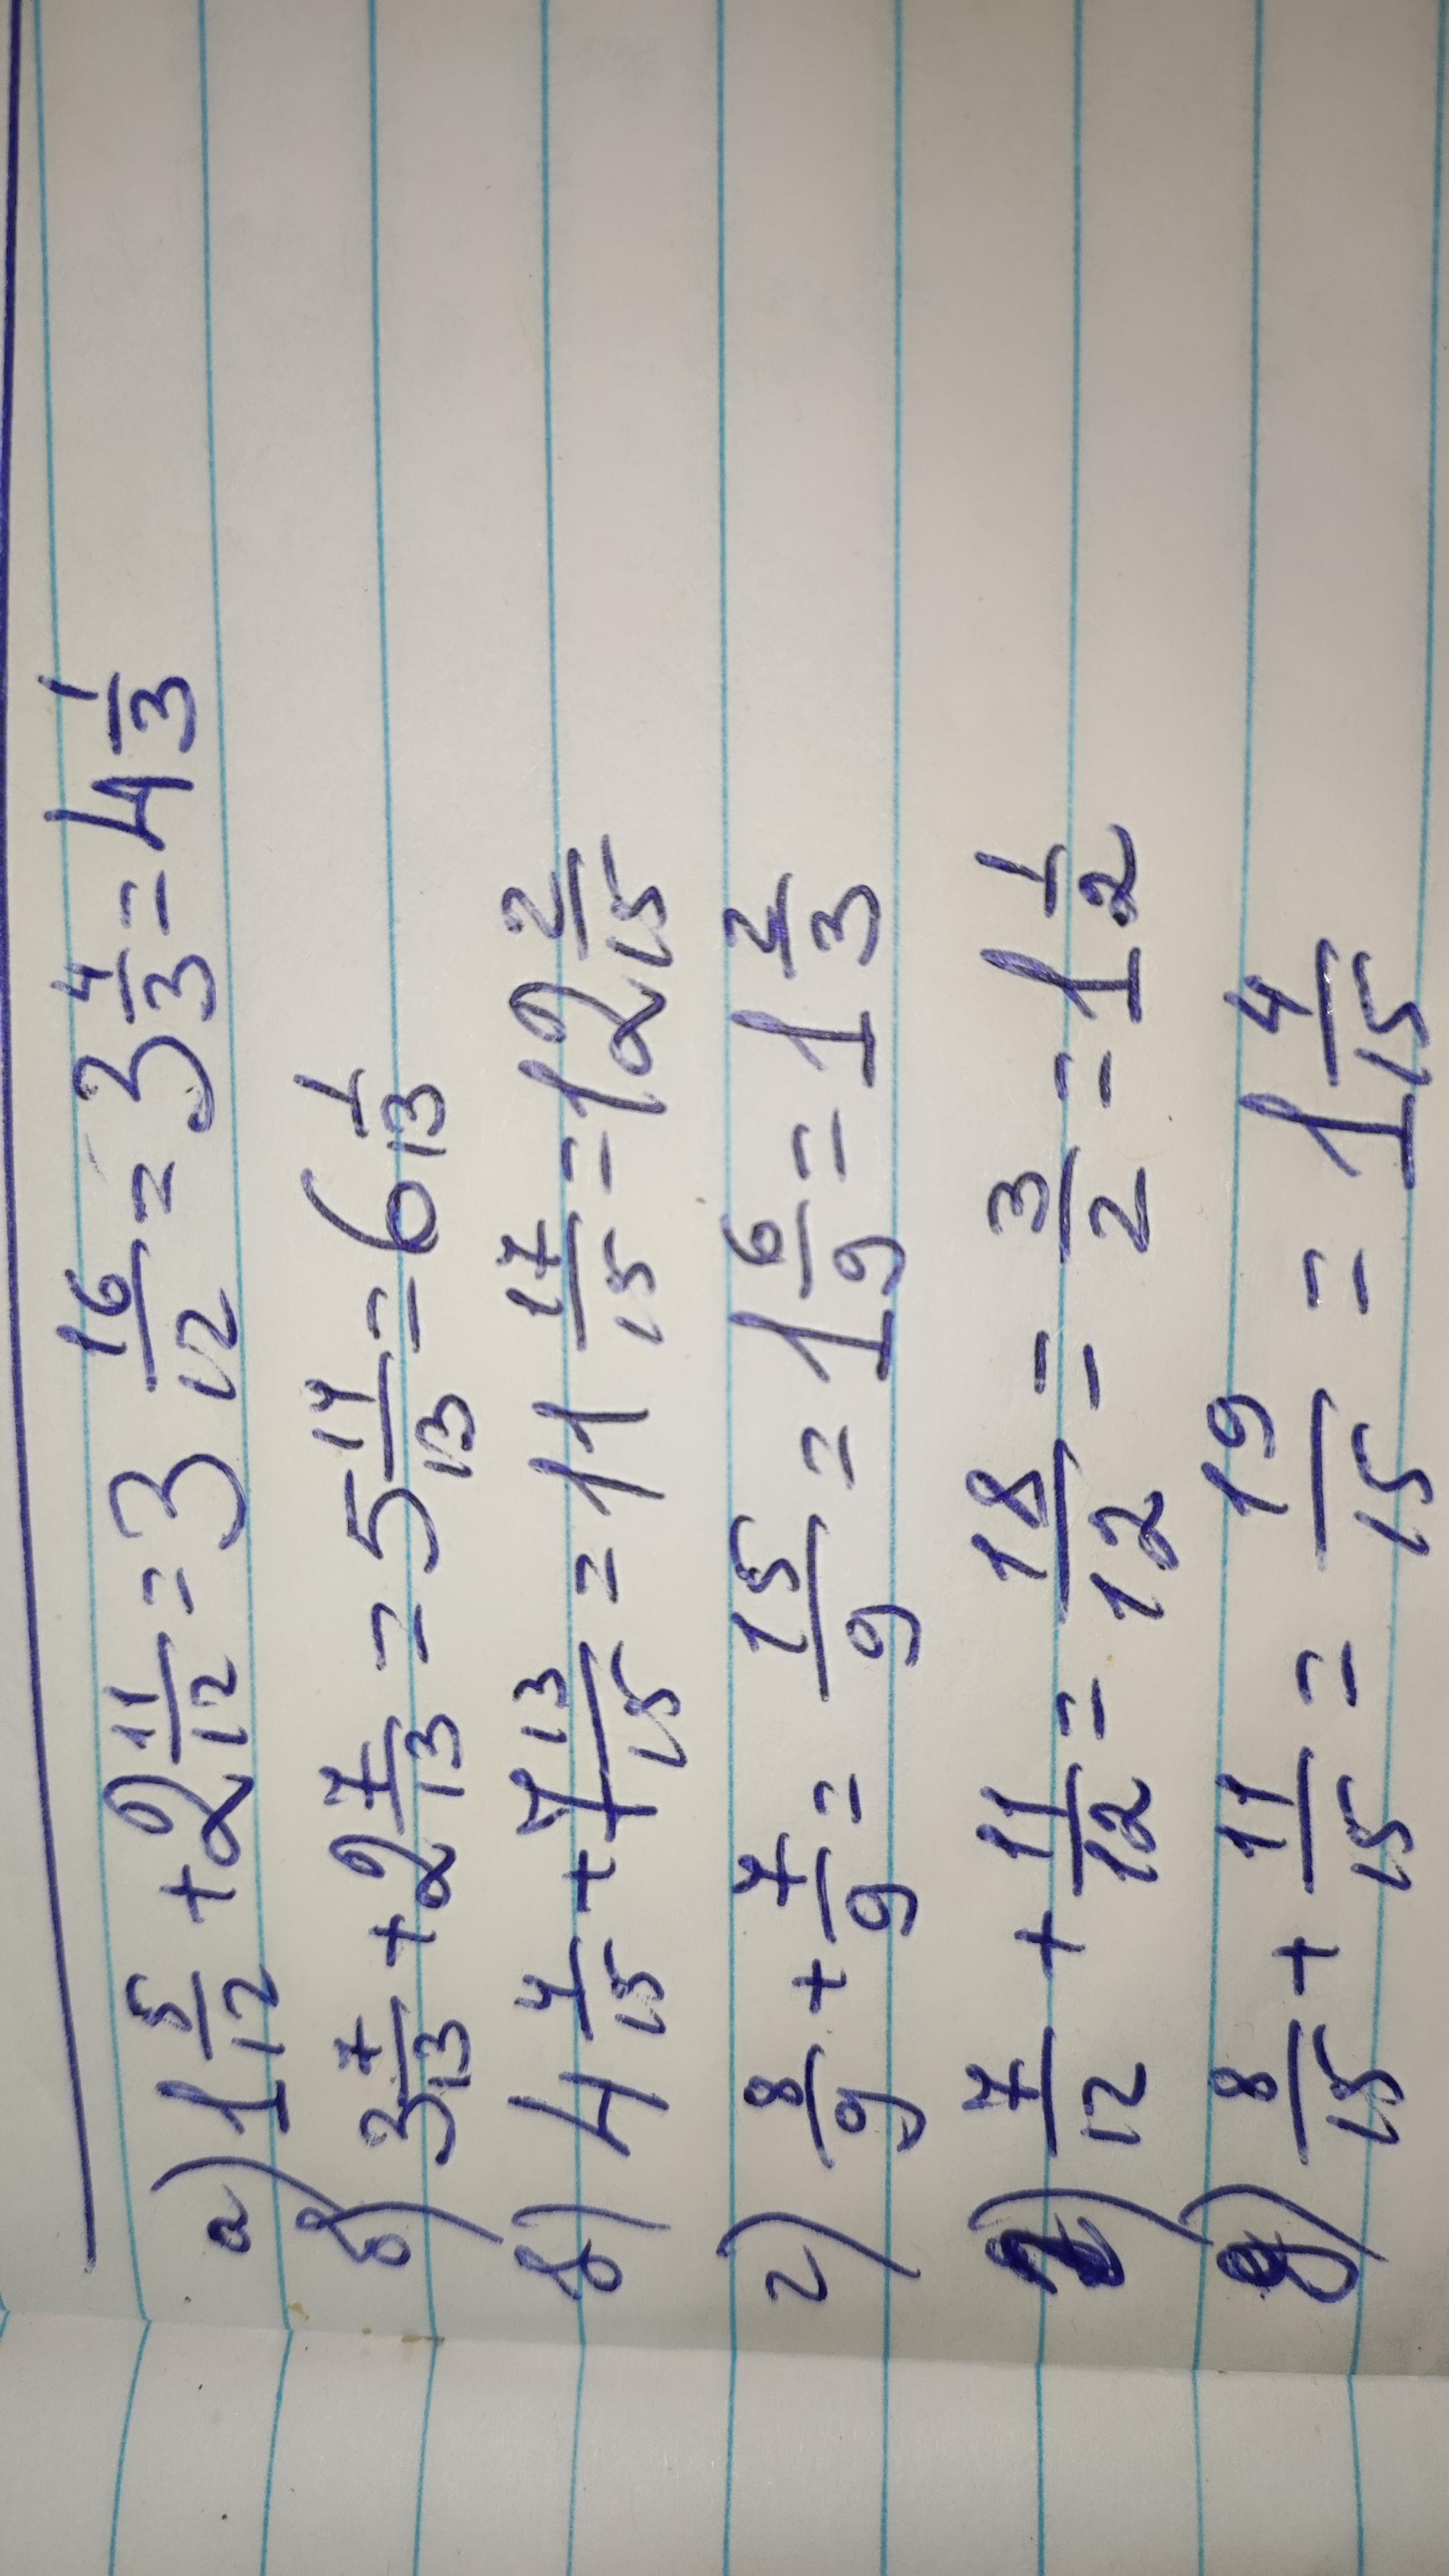 а) 1 5/12 + 2 11/12 = 3 16/12 = 3 4/3 = 4 1/3
б) 3 7/13 + 2 7/13 = 5 14/13 = 6 1/13
в) 4 4/15 + 7 13/15 = 11 17/15 = 12 2/15
г) 8/9 + 7/9 = 15/9 = 1 6/9 = 1 2/3
) 7/12 + 11/12 = 18/12 = 3/2 = 1 1/2
) 8/15 + 11/15 = 19/15 = 1 4/15